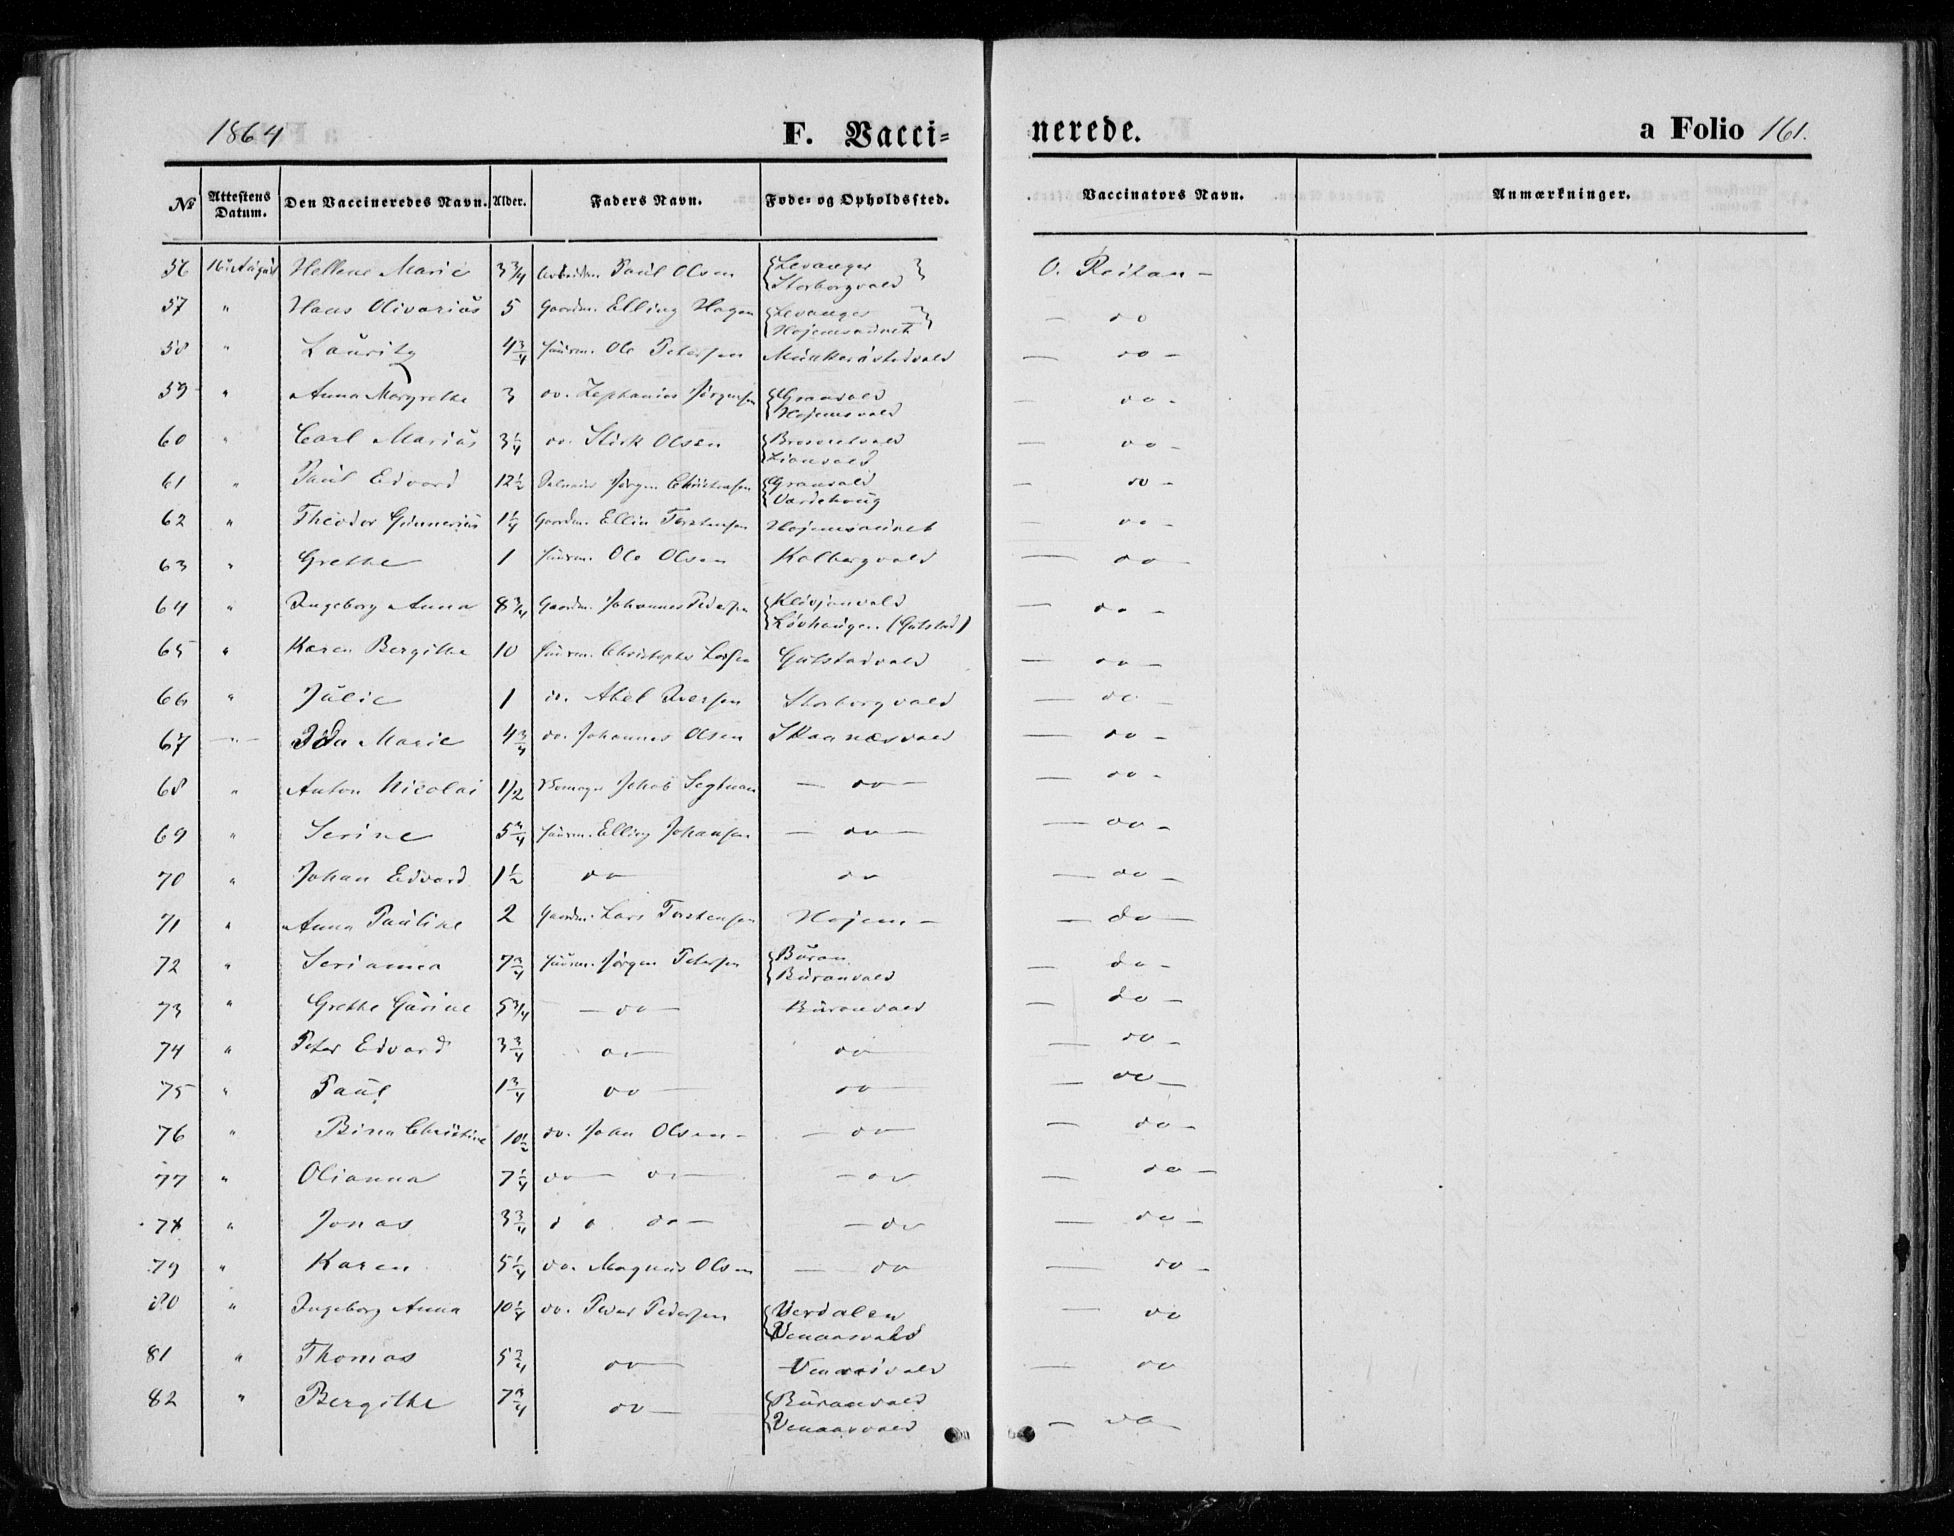 1864 F. Vacci= nerede. a Folio 161.
No Attestens Datum. Den Vaccineredes Navn. Alder. Faders Navn. Føde= og Opholdssted. Vaccinators Navn. Anmærkninger.
56 16 August Hellene Marie 3 3/4 Paul Olsen {Levanger Storborgvald} O. Reitan -
57 " Hans Olivarius 5 Gaardm. Elling Hagen {Levanger Højemsaunet} - do
58 " Lauritz 4 3/4 Huusm. Ole Petersen - do -
59 " Anna Margrethe 3 do. Zephanias Jørgensen {Granvald Højemsvald - do -
60 " Carl Marius 3 1/4 do. Olsen - do -
61 " Paul Edvard 12 1/2 Jørgen Christensen {Granvald Vardehoug - do -
62 " Theodor Gunnerius 1 1/4 Gaardm. Ellin Torstensen Højemsaunet - do -
63 " Grethe 1 Huusm. Ole Olsen Kolbergvald - do -
64 " Ingeborg Anna 8 3/4 Gaardm. Johannes Pedersen {Kløvjanvald Løvhaugen (Gulstad) - do -
65 " Karen Bergithe 10 Huusm. Christopher Larsen Gulstadvald - do -
66 " Julie 1 do. Abel Iversen Storborgvald - do -
67 " Ida Marie 4 3/4 do. Johannes Olsen Skaanesvald - do -
68 " Anton Nicolai 1/2 Jakob - do - - do -
69 " Serine 5 3/4 Huusm. Elling Johansen - do - - do -
70 " Johan Edvard 1 1/2 do do - do -
71 " Anna Pauline 2 Gaardm. Lars Torstensen Højem - - do -
72 " Serianna 7 3/4 Huusm. Jørgen Petersen {Buran Buranvald - do -
73 " Grethe Gurine 5 3/4 - do - Buranvald - do -
74 " Peter Edvard 3 3/4 do - do - - do -
75 " Paul 1 3/4 do - do - - do -
76 " Bina Christine 10 1/2 do. John Olsen - - do - - do -
77 " Olianna 7 1/4 do - do - - do - do -
78 " Jonas 3 3/4 do do - - do - do -
79 " Karen 5 1/4 do. Magnus Olsen - do - do -
80 " Ingeborg Anna 10 1/4 do. Peder Pedersen {Verdalen Venaasvald - do
81 " Thomas 5 3/4 do - Venaasvald - do
82 " Bergithe 7 3/4 do - {Buranvald Venaasvald - do -